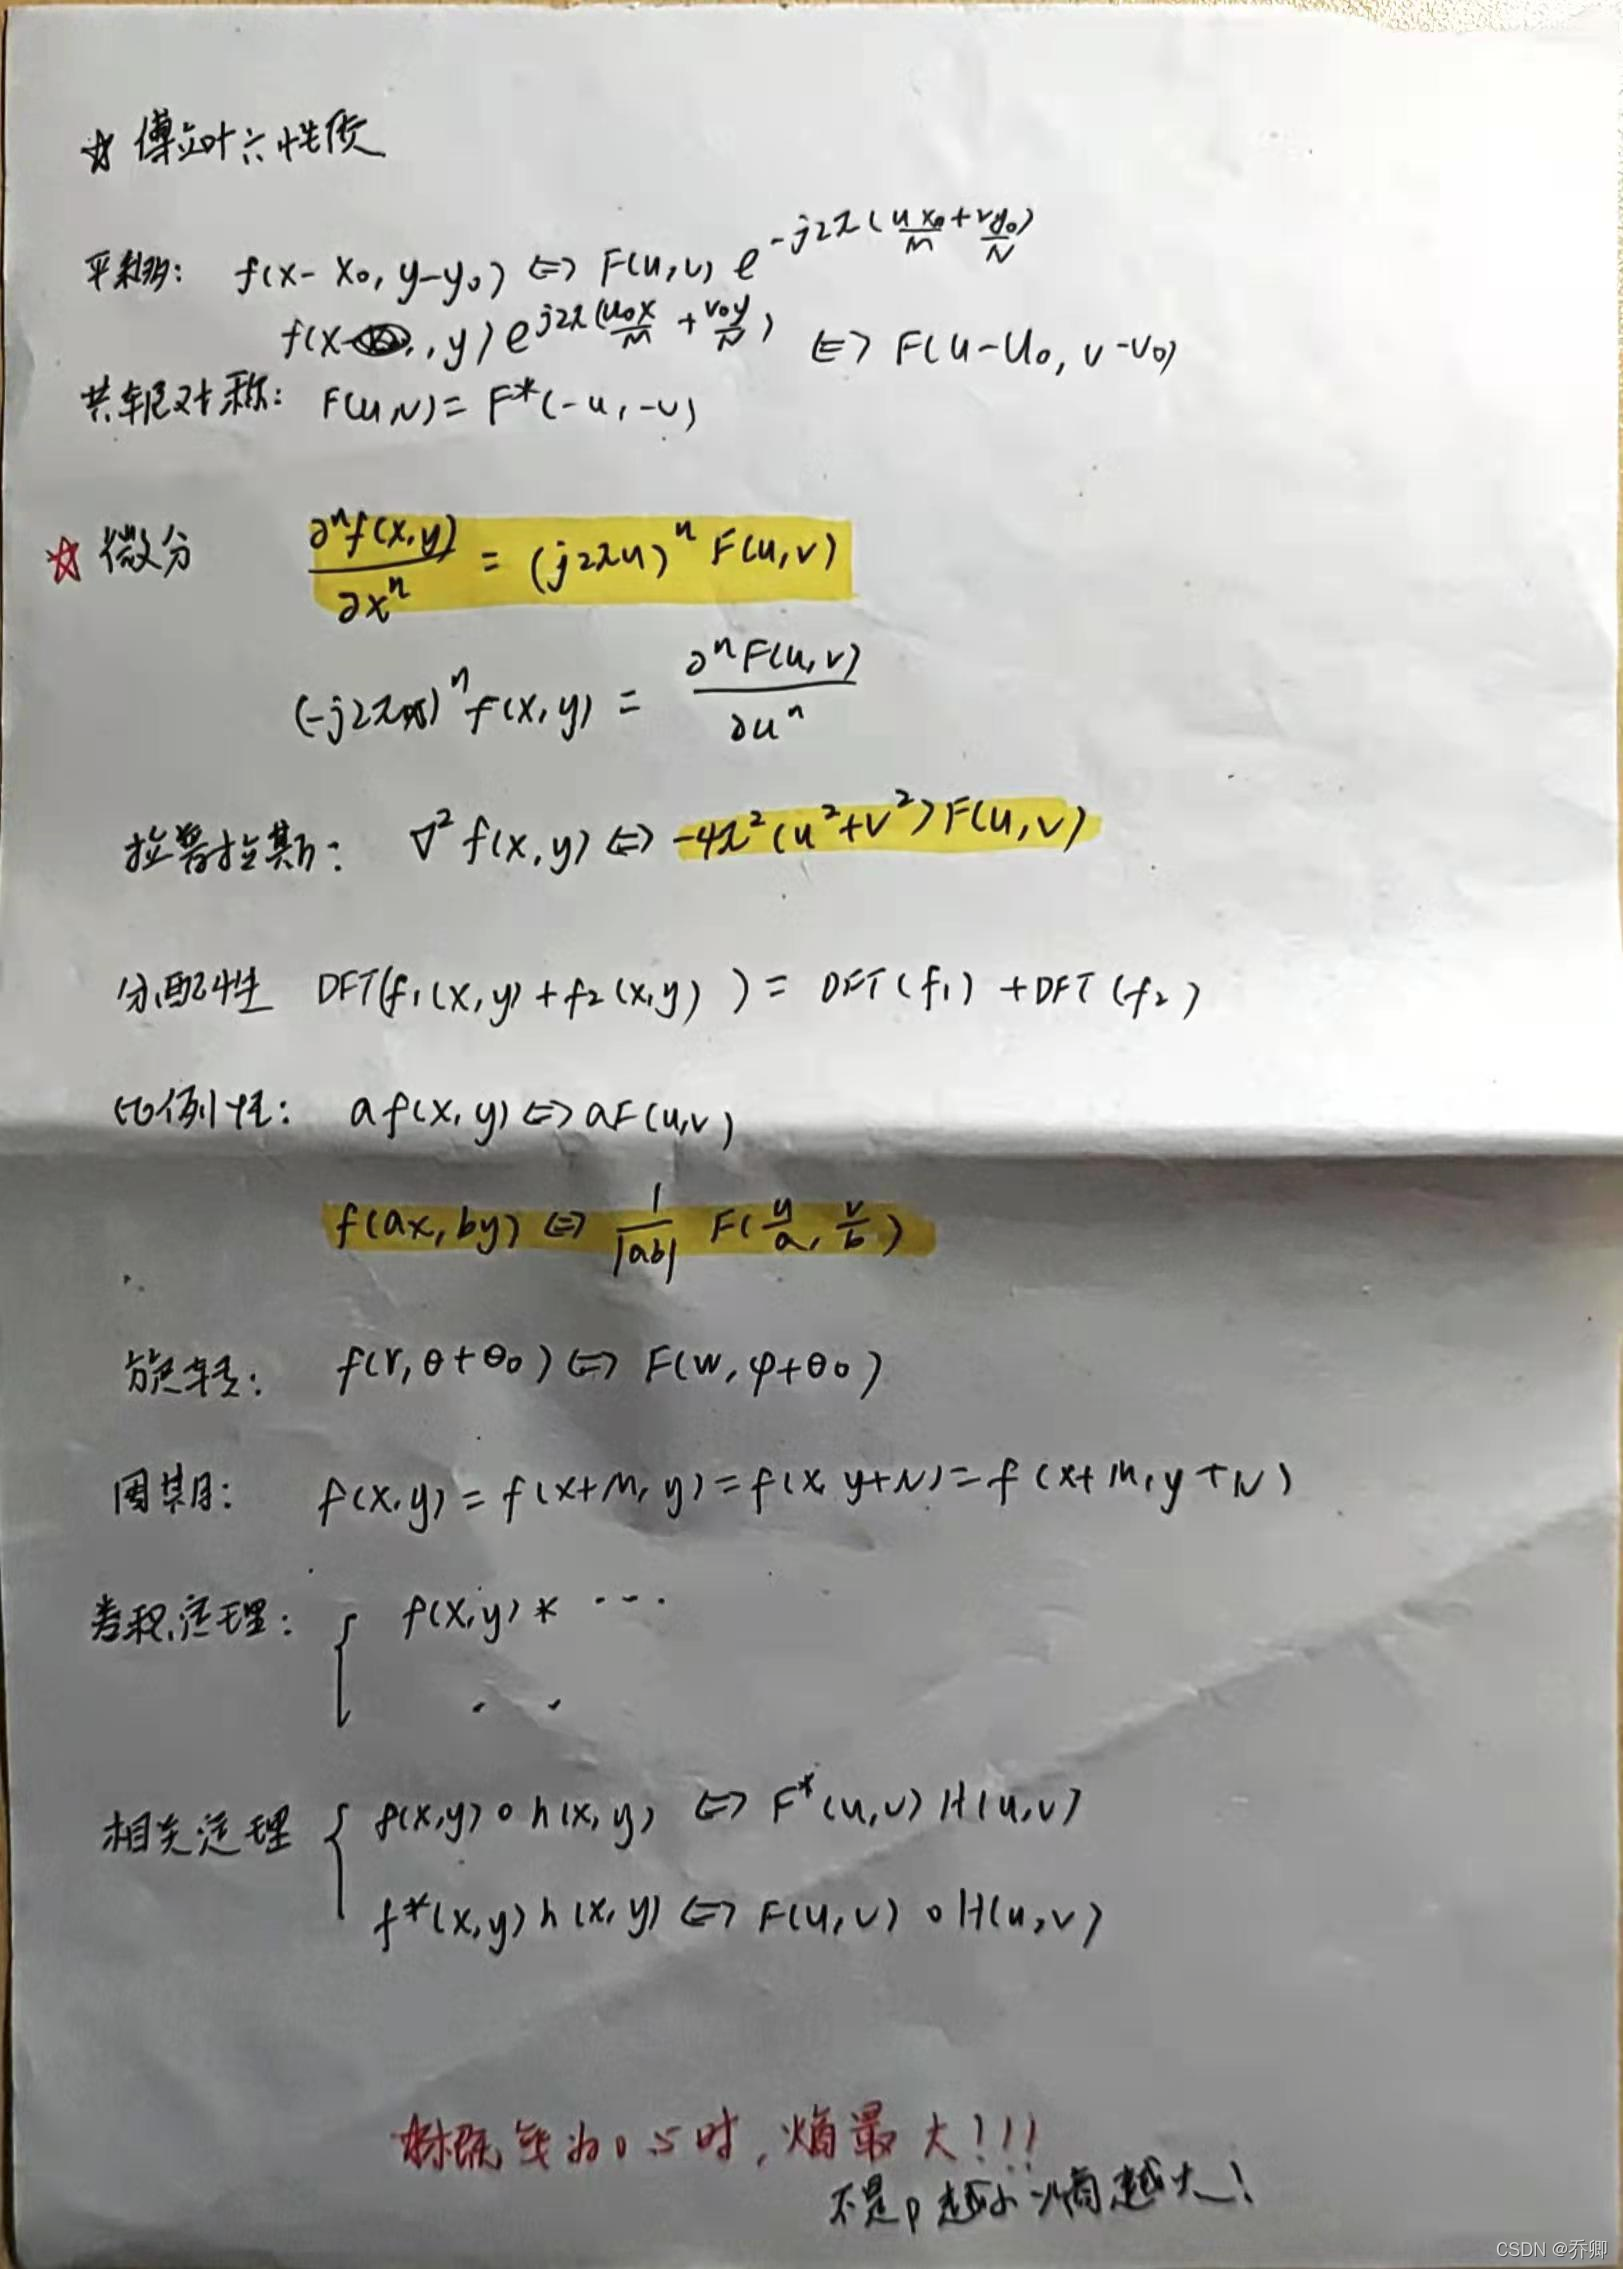 ☆ 傅立叶六性质
平移: f(x-x₀, y-y₀) ⇔ F(u,v) e^{-j2π(ux₀/M + vy₀/N)}
f(x, y) e^{j2π(u₀x/M + v₀y/N)} ⇔ F(u-u₀, v-v₀)
共轭对称: F(u,v) = F*(-u, -v)
☆ 微分 ∂ⁿf(x,y)/∂xⁿ = (j2πu)ⁿ F(u,v)
(-j2πx)ⁿ f(x,y) = ∂ⁿF(u,v)/∂uⁿ
拉普拉斯: ∇² f(x,y) ⇔ -4π²(u²+v²)F(u,v)
分配性 DFT(f₁(x,y)+f₂(x,y)) = DFT(f₁)+DFT(f₂)
比例性: a f(x,y) ⇔ aF(u,v)
f(ax, by) ⇔ 1/|ab| F(u/a, v/b)
旋转: f(r, θ+θ₀) ⇔ F(w, φ+θ₀)
周期: f(x,y) = f(x+M, y) = f(x, y+N) = f(x+M, y+N)
卷积定理: { f(x,y) * ···
· ·
相关定理 { f(x,y)∘h(x,y) ⇔ F*(u,v)H(u,v)
f*(x,y)h(x,y) ⇔ F(u,v)∘H(u,v)
概率为0.5时, 熵最大!!!
不是p越小熵越大!
CSDN @乔卿